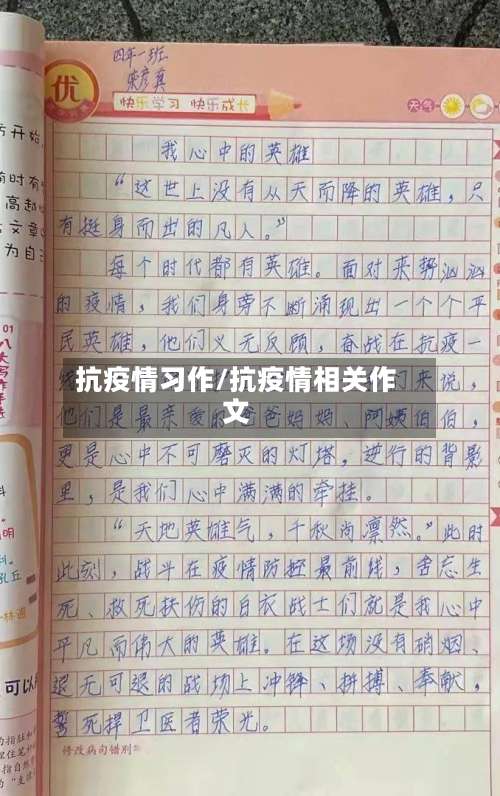 四年一班
优
快乐学习 快乐成长
天气
我心中的英雄
“这世上没有从天而降的英雄,只
有挺身而出的凡人。”
每个时代都有英雄。面对来势汹汹
的疫情,我们身旁不断涌现出一个个平
民英雄,他们义无反顾,奋战在抗疫一
抗疫情习作/抗疫情相关作
文
们来说,
他们是最亲爱的爸爸妈妈、阿姨伯伯,
更是心中不可磨灭的灯塔,逆行的背影
里,是我们心中满满的牵挂。
“天地英雄气,千秋尚凛然。”此时
此刻,战斗在疫情防控最前线,舍忘生
死、救死扶伤的白衣战士们就是我心中
平凡而伟大的英雄。在这场没有硝烟、
退无可退的战场上冲锋、拼搏、奉献,
誓死捍卫医者荣光。
修改病句错别